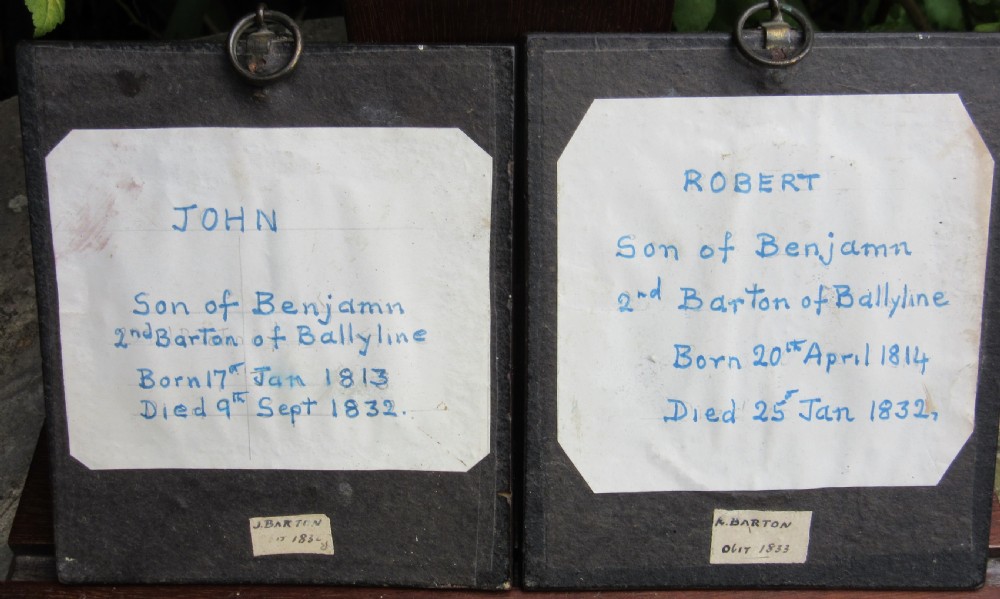 JOHN
Son of Benjamn
2nd Barton of Ballyline
Born 17th Jan 1813
Died 9th Sept 1832.
J. BARTON
ROBERT
Son of Benjamn
2nd Barton of Ballyline
Born 20th April 1814
Died 25th Jan 1832,
R. BARTON
Obit 1833